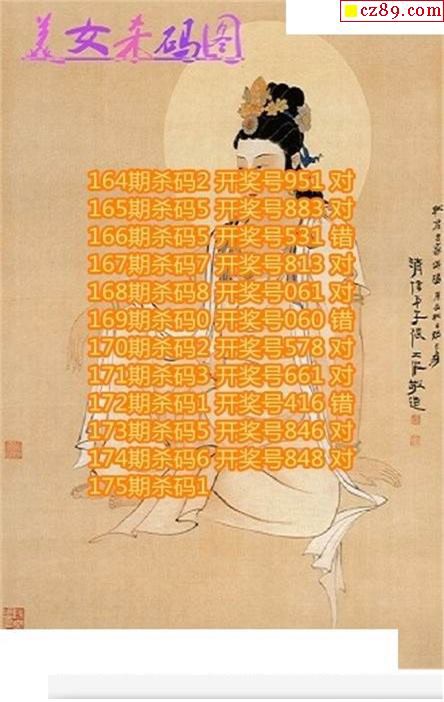 美女杀码图
cz89.com
164期杀码2 开奖号951 对
165期杀码5 开奖号883 对
166期杀码5 开奖号531 错
167期杀码7 开奖号813 对
168期杀码8 开奖号061 对
169期杀码0 开奖号060 错
170期杀码2 开奖号578 对
171期杀码3 开奖号661 对
172期杀码1 开奖号416 错
173期杀码5 开奖号846 对
174期杀码6 开奖号848 对
175期杀码1